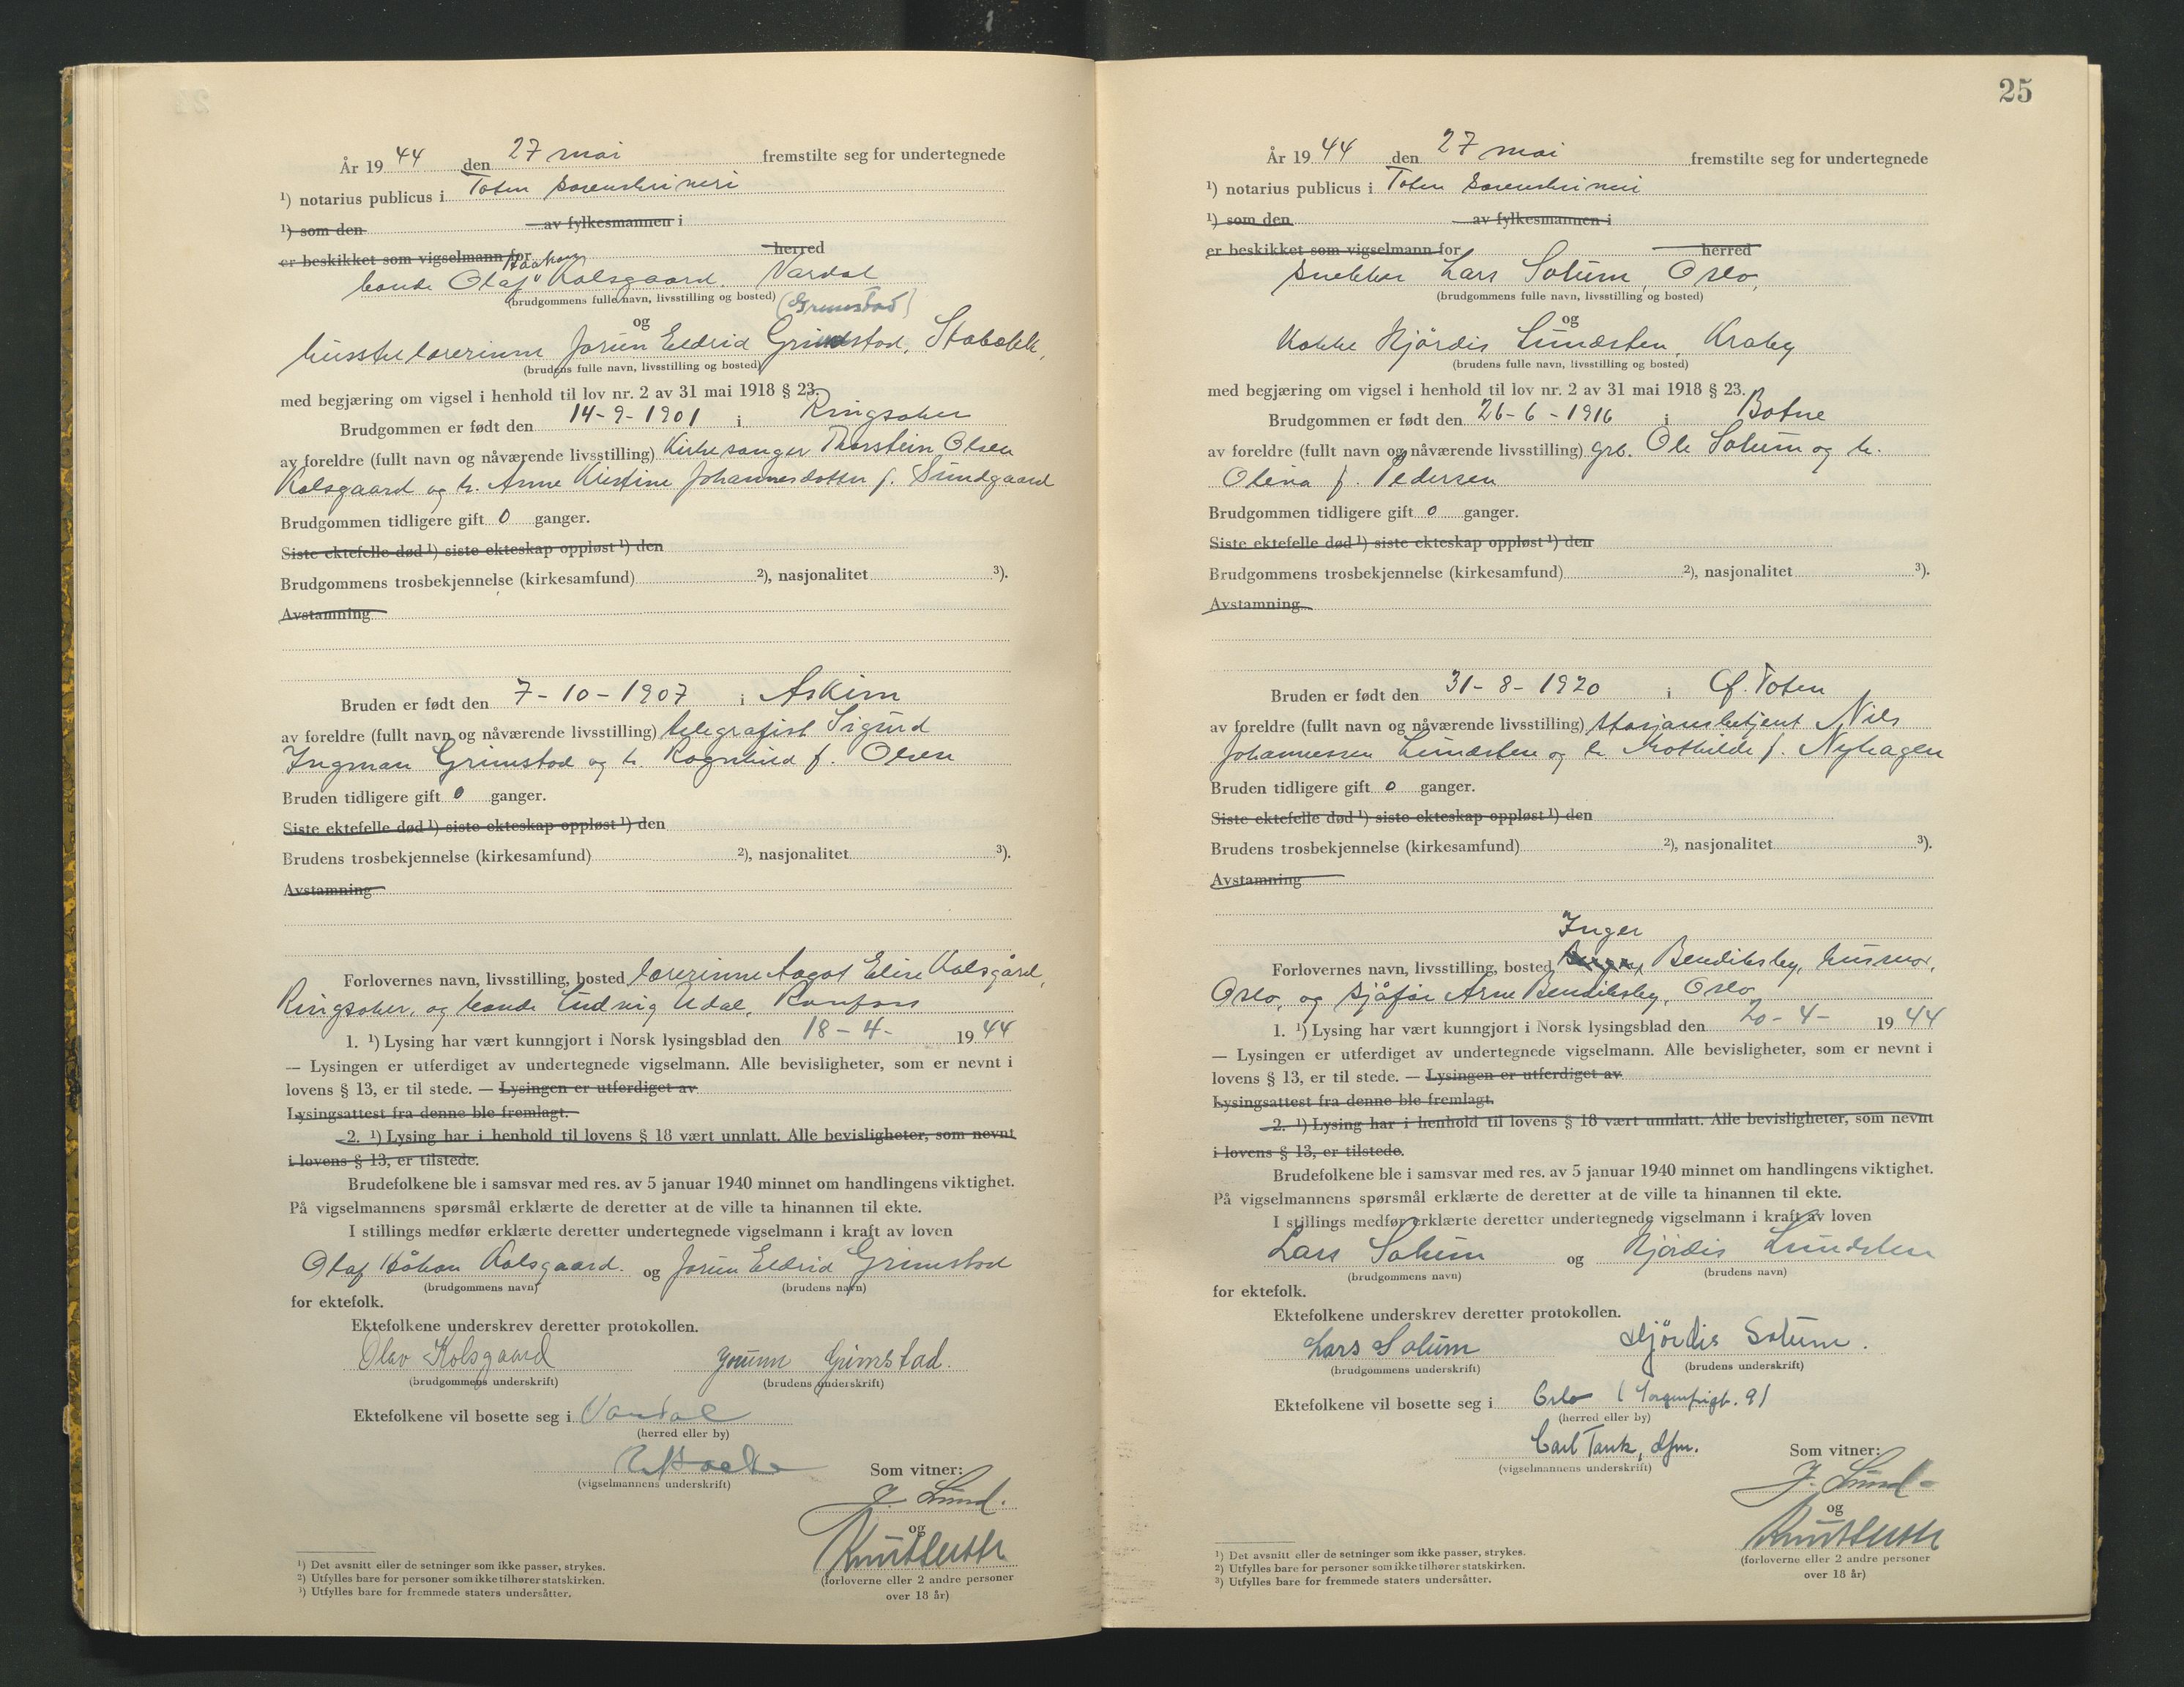 År 19 44 den 27 mai fremstilte seg for undertegnede
¹) notarius publicus i Toten sorenskriveri
¹) som den av fylkesmannen i
er beskikket som vigselmann for herred
Haakon
bonde Olaf Kolsgaard. Vardal
(brudgommens fulle navn, livsstilling og bosted) (Grimstad)
og
husstellærerinne Jorun Eldrid Grimstad, Stabekk,
(brudens fulle navn, livsstilling og bosted)
med begjæring om vigsel i henhold til lov nr. 2 av 31 mai 1918 § 23.
Brudgommen er født den 14-9-1901 i Ringsaker
av foreldre (fullt navn og nåværende livsstilling) Kirkesanger Thorstein Olsen
Kolsgaard og h. Anne Kristine Johannesdotter f. Sundgaard
Brudgommen tidligere gift 0 ganger.
Siste ektefelle død ¹) siste ekteskap oppløst ¹) den
Brudgommens trosbekjennelse (kirkesamfund) ²), nasjonalitet ³).
Avstamning
Bruden er født den 7-10-1907 i Askim
av foreldre (fullt navn og nåværende livsstilling) telegrafist Sigurd
Ingman Grimstad og h. Ragnhild f. Olsen
Bruden tidligere gift 0 ganger.
Siste ektefelle død ¹) siste ekteskap oppløst ¹) den
Brudens trosbekjennelse (kirkesamfund) ²), nasjonalitet ³).
Avstamning
Forlovernes navn, livsstilling, bosted lærerinne Aagot Elise Kolsgård,
Ringsaker, og bonde Ludvig Udal, Raufoss
1. ¹) Lysing har vært kunngjort i Norsk lysingsblad den 18-4- 19 44
— Lysingen er utferdiget av undertegnede vigselmann. Alle bevisligheter, som er nevnt i
lovens § 13, er til stede. — Lysingen er utferdiget av
Lysingsattest fra denne ble fremlagt.
2. ¹) Lysing har i henhold til lovens § 18 vært unnlatt. Alle bevisligheter, som nevnt
i lovens § 13, er tilstede.
Brudefolkene ble i samsvar med res. av 5 januar 1940 minnet om handlingens viktighet.
På vigselmannens spørsmål erklærte de deretter at de ville ta hinannen til ekte.
I stillings medfør erklærte deretter undertegnede vigselmann i kraft av loven
Olaf Håkon Kolsgaard. og Jorun Eldrid Grimstad
(brudgommens navn) (brudens navn)
for ektefolk.
Ektefolkene underskrev deretter protokollen.
Olav Kolsgaard Jorunn Grimstad.
(brudgommens underskrift) (brudens underskrift)
Ektefolkene vil bosette seg i Vardal
(herred eller by)
Som vitner:
(vigselmannens underskrift)
J. Lund.
og
Knut
(forloverne eller 2 andre personer
over 18 år)
¹) Det avsnitt eller de setninger som ikke passer, strykes.
²) Utfylles bare for personer som ikke tilhører statskirken.
³) Utfylles bare for fremmede staters undersåtter.
25
År 19 44 den 27 mai fremstilte seg for undertegnede
¹) notarius publicus i Toten sorenskriveri
¹) som den av fylkesmannen i
er beskikket som vigselmann for herred
snekker Lars Solum, Oslo,
(brudgommens fulle navn, livsstilling og bosted)
og
Kokke Hjördis Lundsten, Kraby
(brudens fulle navn, livsstilling og bosted)
med begjæring om vigsel i henhold til lov nr. 2 av 31 mai 1918 § 23.
Brudgommen er født den 26-6-1916 i Botne
av foreldre (fullt navn og nåværende livsstilling) grb. Ole Solum og h.
Olena f. Pedersen
Brudgommen tidligere gift 0 ganger.
Siste ektefelle død ¹) siste ekteskap oppløst ¹) den
Brudgommens trosbekjennelse (kirkesamfund) ²), nasjonalitet ³).
Avstamning
Bruden er født den 31-8-1920 i Ø. Toten
av foreldre (fullt navn og nåværende livsstilling) stasjonsbetjent Nils
Johannessen Lundsten og h. Mathilde f. Nyhagen
Bruden tidligere gift 0 ganger.
Siste ektefelle død ¹) siste ekteskap oppløst ¹) den
Brudens trosbekjennelse (kirkesamfund) ²), nasjonalitet ³).
Avstamning
Inger
Forlovernes navn, livsstilling, bosted Bendiksby, husmor,
Oslo, og sjåfør Arne Bendiksby, Oslo
1. ¹) Lysing har vært kunngjort i Norsk lysingsblad den 20-4- 19 44
— Lysingen er utferdiget av undertegnede vigselmann. Alle bevisligheter, som er nevnt i
lovens § 13, er til stede. — Lysingen er utferdiget av
Lysingsattest fra denne ble fremlagt.
2. ¹) Lysing har i henhold til lovens § 18 vært unnlatt. Alle bevisligheter, som nevnt
i lovens § 13, er tilstede.
Brudefolkene ble i samsvar med res. av 5 januar 1940 minnet om handlingens viktighet.
På vigselmannens spørsmål erklærte de deretter at de ville ta hinannen til ekte.
I stillings medfør erklærte deretter undertegnede vigselmann i kraft av loven
Lars Solum og Hjördis Lundsten
(brudgommens navn) (brudens navn)
for ektefolk.
Ektefolkene underskrev deretter protokollen.
Lars Solum Hjördis Solum.
(brudgommens underskrift) (brudens underskrift)
Ektefolkene vil bosette seg i Oslo (Sorgenfrigt. 9)
(herred eller by)
Carl Tank, dfm. Som vitner:
(vigselmannens underskrift)
J. Lund
og
Knut
(forloverne eller 2 andre personer
over 18 år)
¹) Det avsnitt eller de setninger som ikke passer, strykes.
²) Utfylles bare for personer som ikke tilhører statskirken.
³) Utfylles bare for fremmede staters undersåtter.